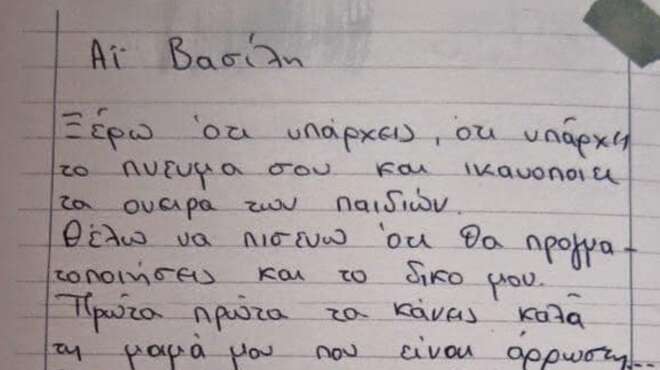 Αϊ Βασίλη
Ξέρω ότι υπάρχεις, ότι υπάρχει
το πνευμα σου και ικανοποιει
τα ονειρα των παιδιών.
Θέλω να πισευω ότι θα πραγμα-
τοποιήσεις και το δικο μου.
Πρώτα πρώτα τα κάνεις καλά
τη μαμά μου που είναι άρρωστη...